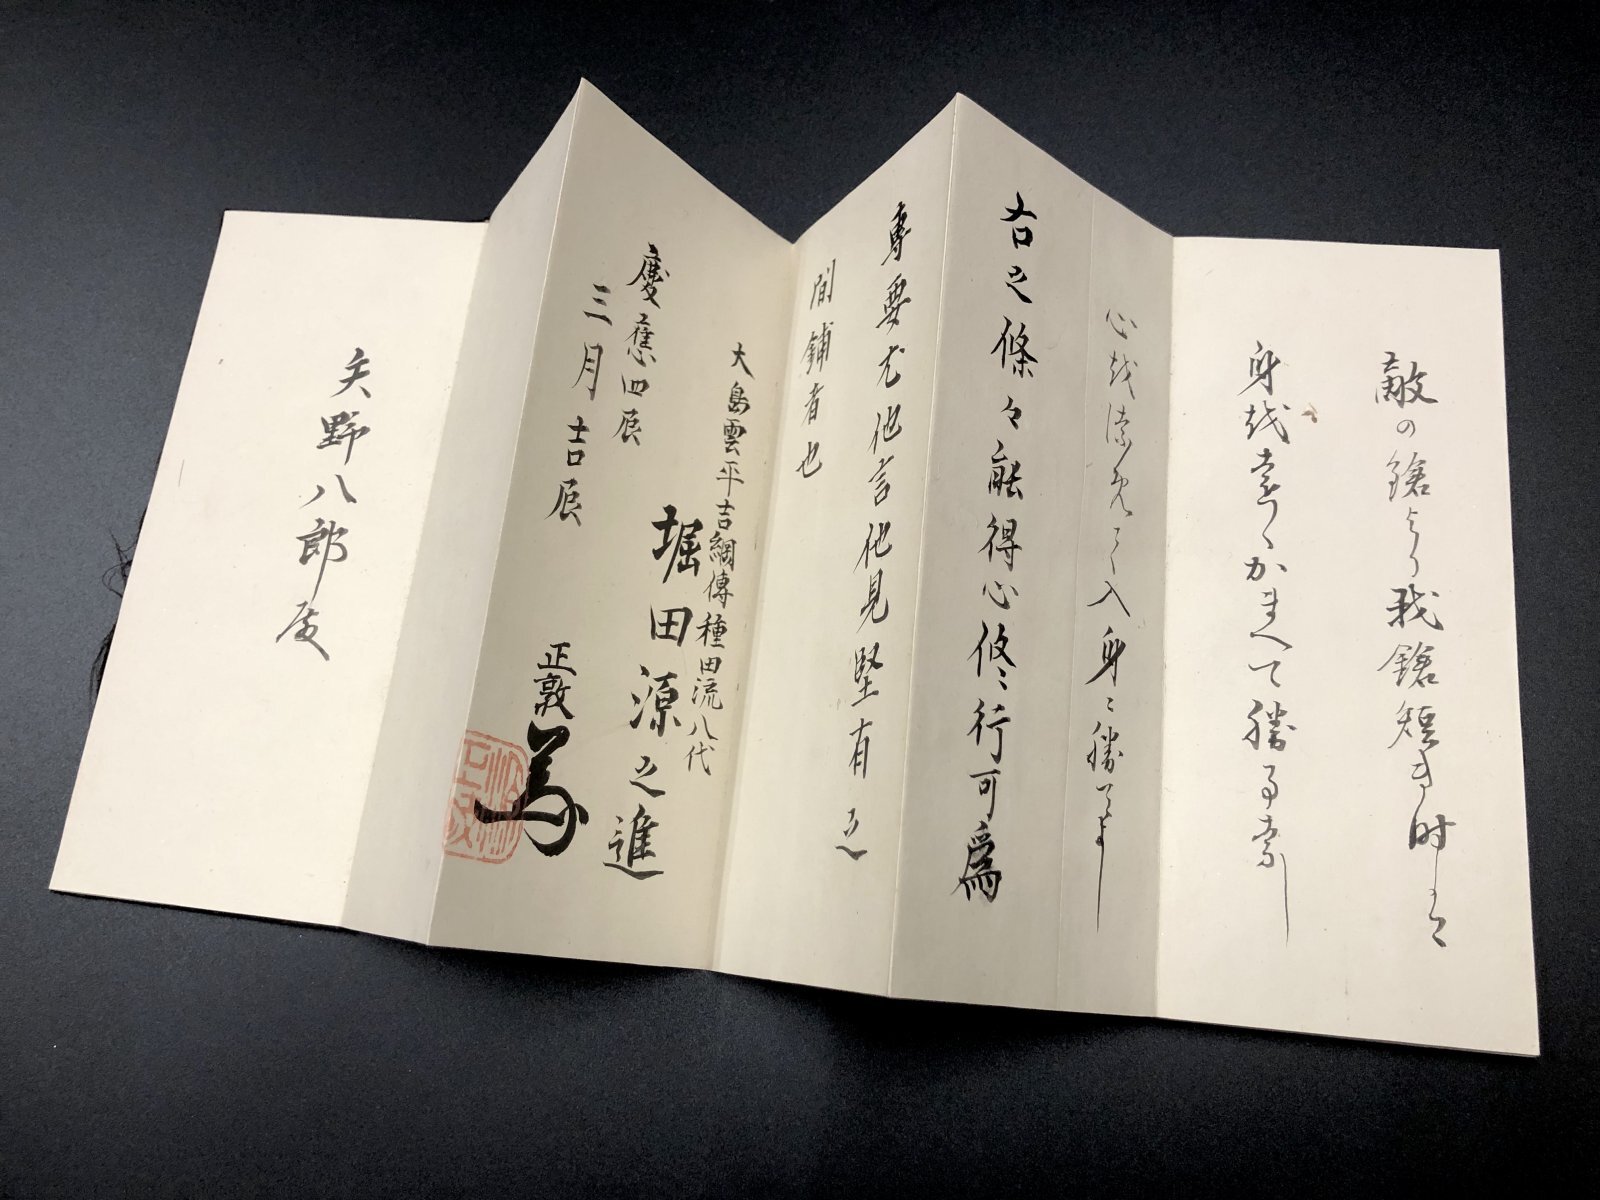 敵の鎗より我鎗短き時は
身越遠くかまへて勝る事
心越 入身に勝
右之條々能得心修行可為
専要尤他言他見堅有之
間鋪者也
大島雲平吉綱傳種田流八代
堀田源之進
正敦
慶應四辰
三月吉辰
矢野八郎殿